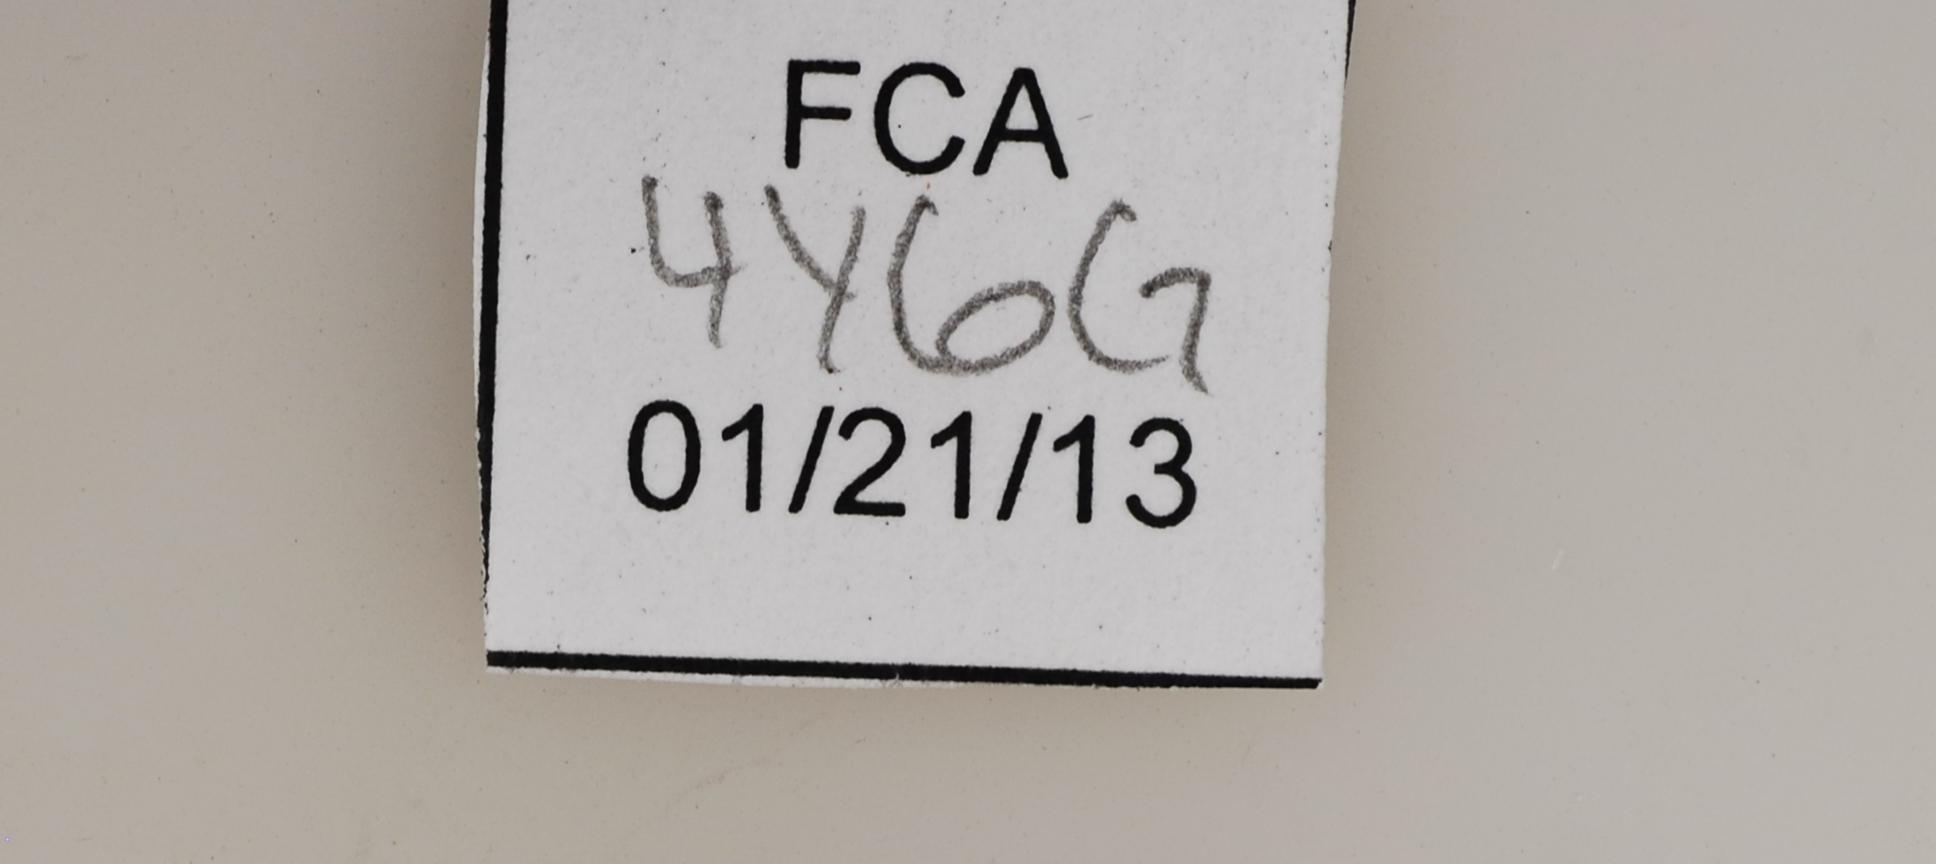 FCA
4Y6G
01/21/13